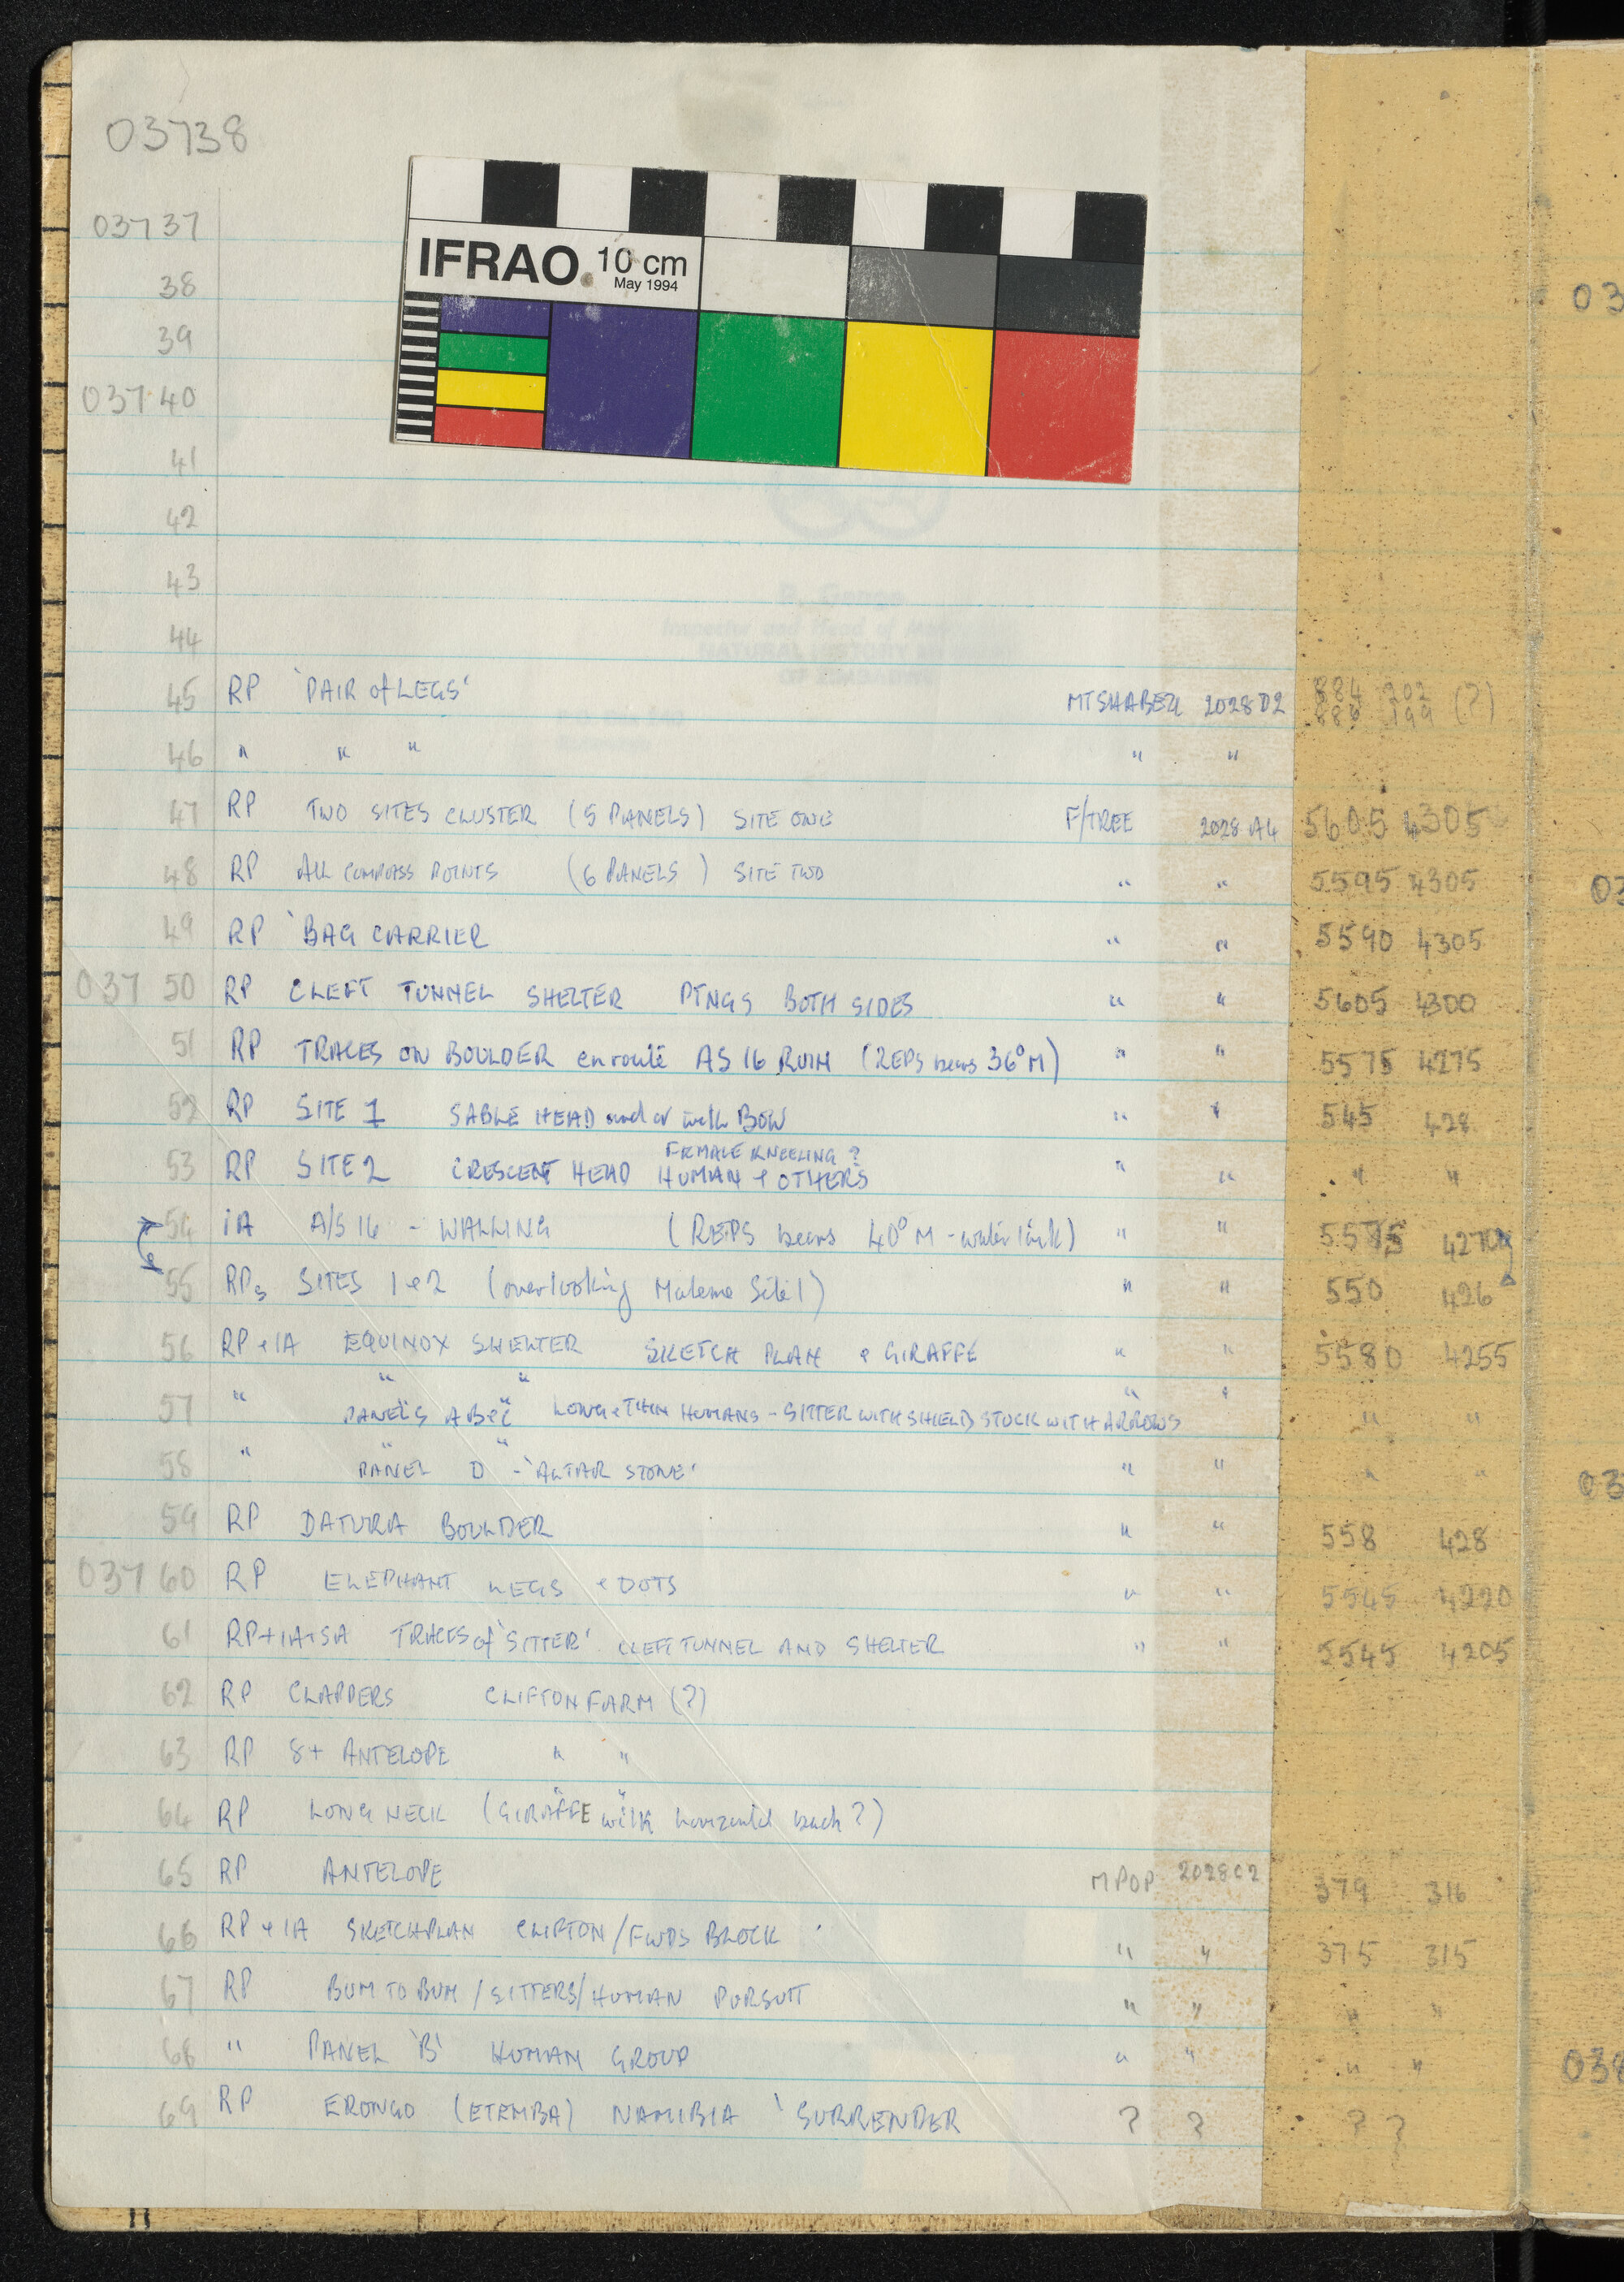 03738
03737
IFRAO 10 cm
May 1994
38
39
03740
41
42
43
44
45 RP 'PAIR of LEGS' MTSHABEZI 2028 D2 884 202 (?)
886 199
46 " " " " "
47 RP TWO SITES CLUSTER (5 PANELS) SITE ONE F/TREE 2028 A4 5605 4305
48 RP ALL COMPASS POINTS (6 PANELS) SITE TWO " " 5595 4305
49 RP 'BAG CARRIER " " 5590 4305
03750 RP CLEFT TUNNEL SHELTER PTNGS BOTH SIDES " " 5605 4300
51 RP TRACES ON BOULDER en route AS 16 RUIN (REPS bears 36° M) " " 5575 4275
52 RP SITE 1 SABLE HEAD and with BOW " " 545 428
FEMALE KNEELING ?
53 RP SITE 2 CRESCENT HEAD HUMAN + OTHERS " " " "
54 IA A/S 16 - WALLING (REPS bears 40° M - water tank) " " 5575 4270
55 RPs SITES 1 & 2 (overlooking Maleme Site 1) " " 550 426
56 RP & IA EQUINOX SHELTER SKETCH PLAN & GIRAFFE " " 5580 4255
" " " " "
57 PANELS A B & C LONG & THIN HUMANS - SITTER WITH SHIELD STUCK WITH ARROWS " "
58 " " " PANEL D - 'ALTAR STONE' " " " "
59 RP DATURA BOULDER " " 558 428
03760 RP ELEPHANT LEGS & DOTS " " 5545 4220
61 RP+IA+SA TRACES of 'SITTER' CLEFT TUNNEL AND SHELTER " " 5545 4205
62 RP CLAPPERS CLIFTON FARM (?)
63 RP 8+ ANTELOPE " "
" "
64 RP LONG NECK (GIRAFFE with horizontal back?)
65 RP ANTELOPE MPOP 2028C2 379 316
66 RP & IA SKETCHPLAN CLIFTON/FWDS BLOCK " " 375 315
67 RP BUM TO BUM / SITTERS / HUMAN PURSUIT " " " "
68 " PANEL 'B' HUMAN GROUP " " " "
69 RP ERONGO (ETEMBA) NAMIBIA 'SURRENDER ? ? ? ?
03
03
03
038